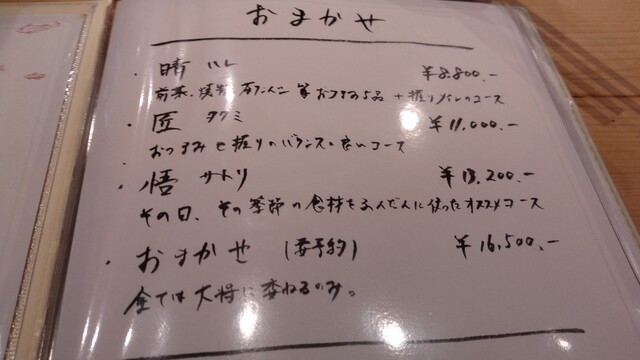 おまかせ
・晴 ハレ ¥8.800.-
前菜、焼物、等おつまみ5品 + 握りのコース
・匠 タクミ ¥11.000.-
おつまみと握りのバランス良いコース
・悟 サトリ ¥13.200.-
その日、その季節の食材をふんだんに使ったオススメコース
・おまかせ (要予約) ¥16,500.-
全ては大将に委ねるのみ。